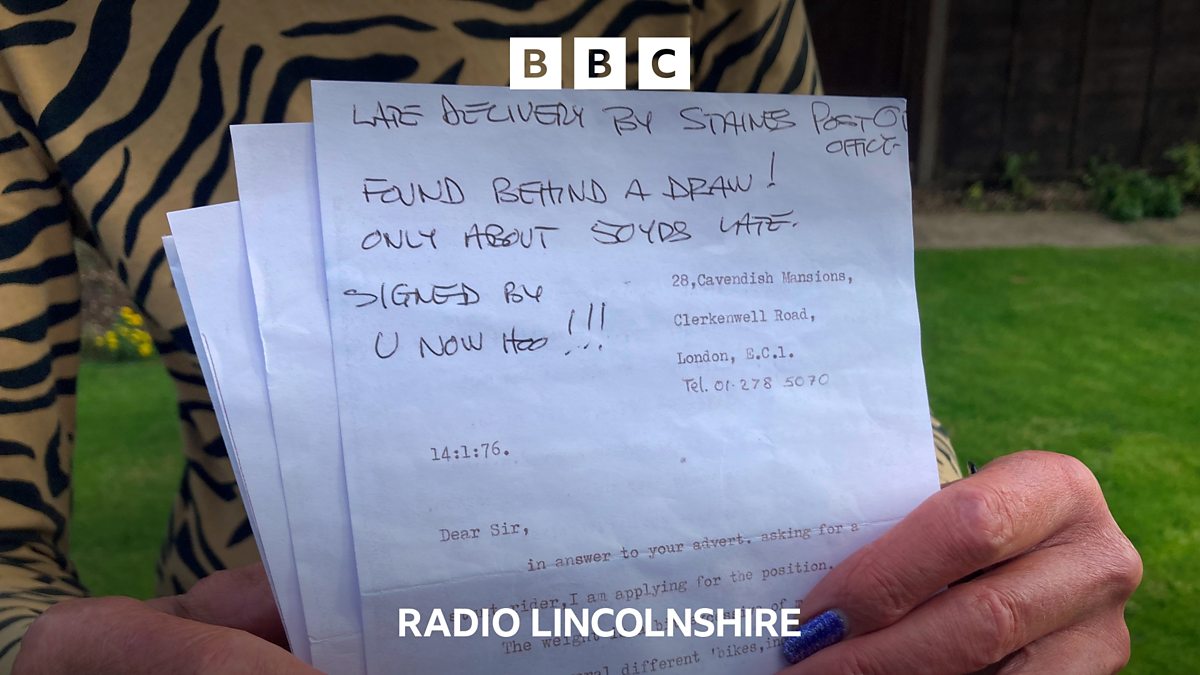 BBC
LATE DELIVERY BY STAINES POST O
OFFICE
FOUND BEHIND A DRAW!
ONLY ABOUT 50YDS LATE.
SIGNED BY
U NOW HOO !!!
28,Cavendish Mansions,
Clerkenwell Road,
London, E.C.1.
Tel. 01-278 5070
14:1:76.
Dear Sir,
in answer to your advert. asking for a
rider,I am applying for the position.
The weight
different 'bikes,
RADIO LINCOLNSHIRE